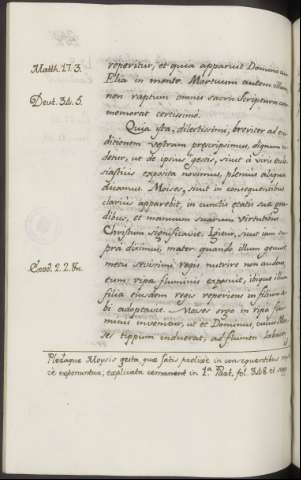 Matth. 17. 3.
reperitur, et quia apparuit Domino cum
Elia in monte. Mortuum autem illum,
Deut. 34. 5.
non raptum omnis sacra Scriptura com
memorat certissime.
Quia ista, dilectissimi, breviter ad eru
ditionem vestram praescripsimus, dignum vi
detur, ut de ipsius gestis, sicut à viris eccle
siasticis exposita novimus, plenius aliqua
dicamus. Moises, sicut in consequentibus
clarius apparebit, in cunctis etatis suae gra
dibus, et manuum suarum virtutibus
Christum significavit. Igitur, sicut jam su
pra diximus, mater quando illum genuit
Exod. 2. 2. &c.
metu sevissimi regis nutrire non auden
tem; ripa fluminis exposuit, ibique illum
filia ejusdem regis reperiens in filium si
bi adoptavit. Moses ergo in ripa flu
minis invenitur, ut et Dominus, cuius Moi
ses tippum induerat, ad flumen
Pleraque Moysis gesta, quae satis prolixè in consequentibus
explicata cernantur in 1.ª Part. fol. et seqq.